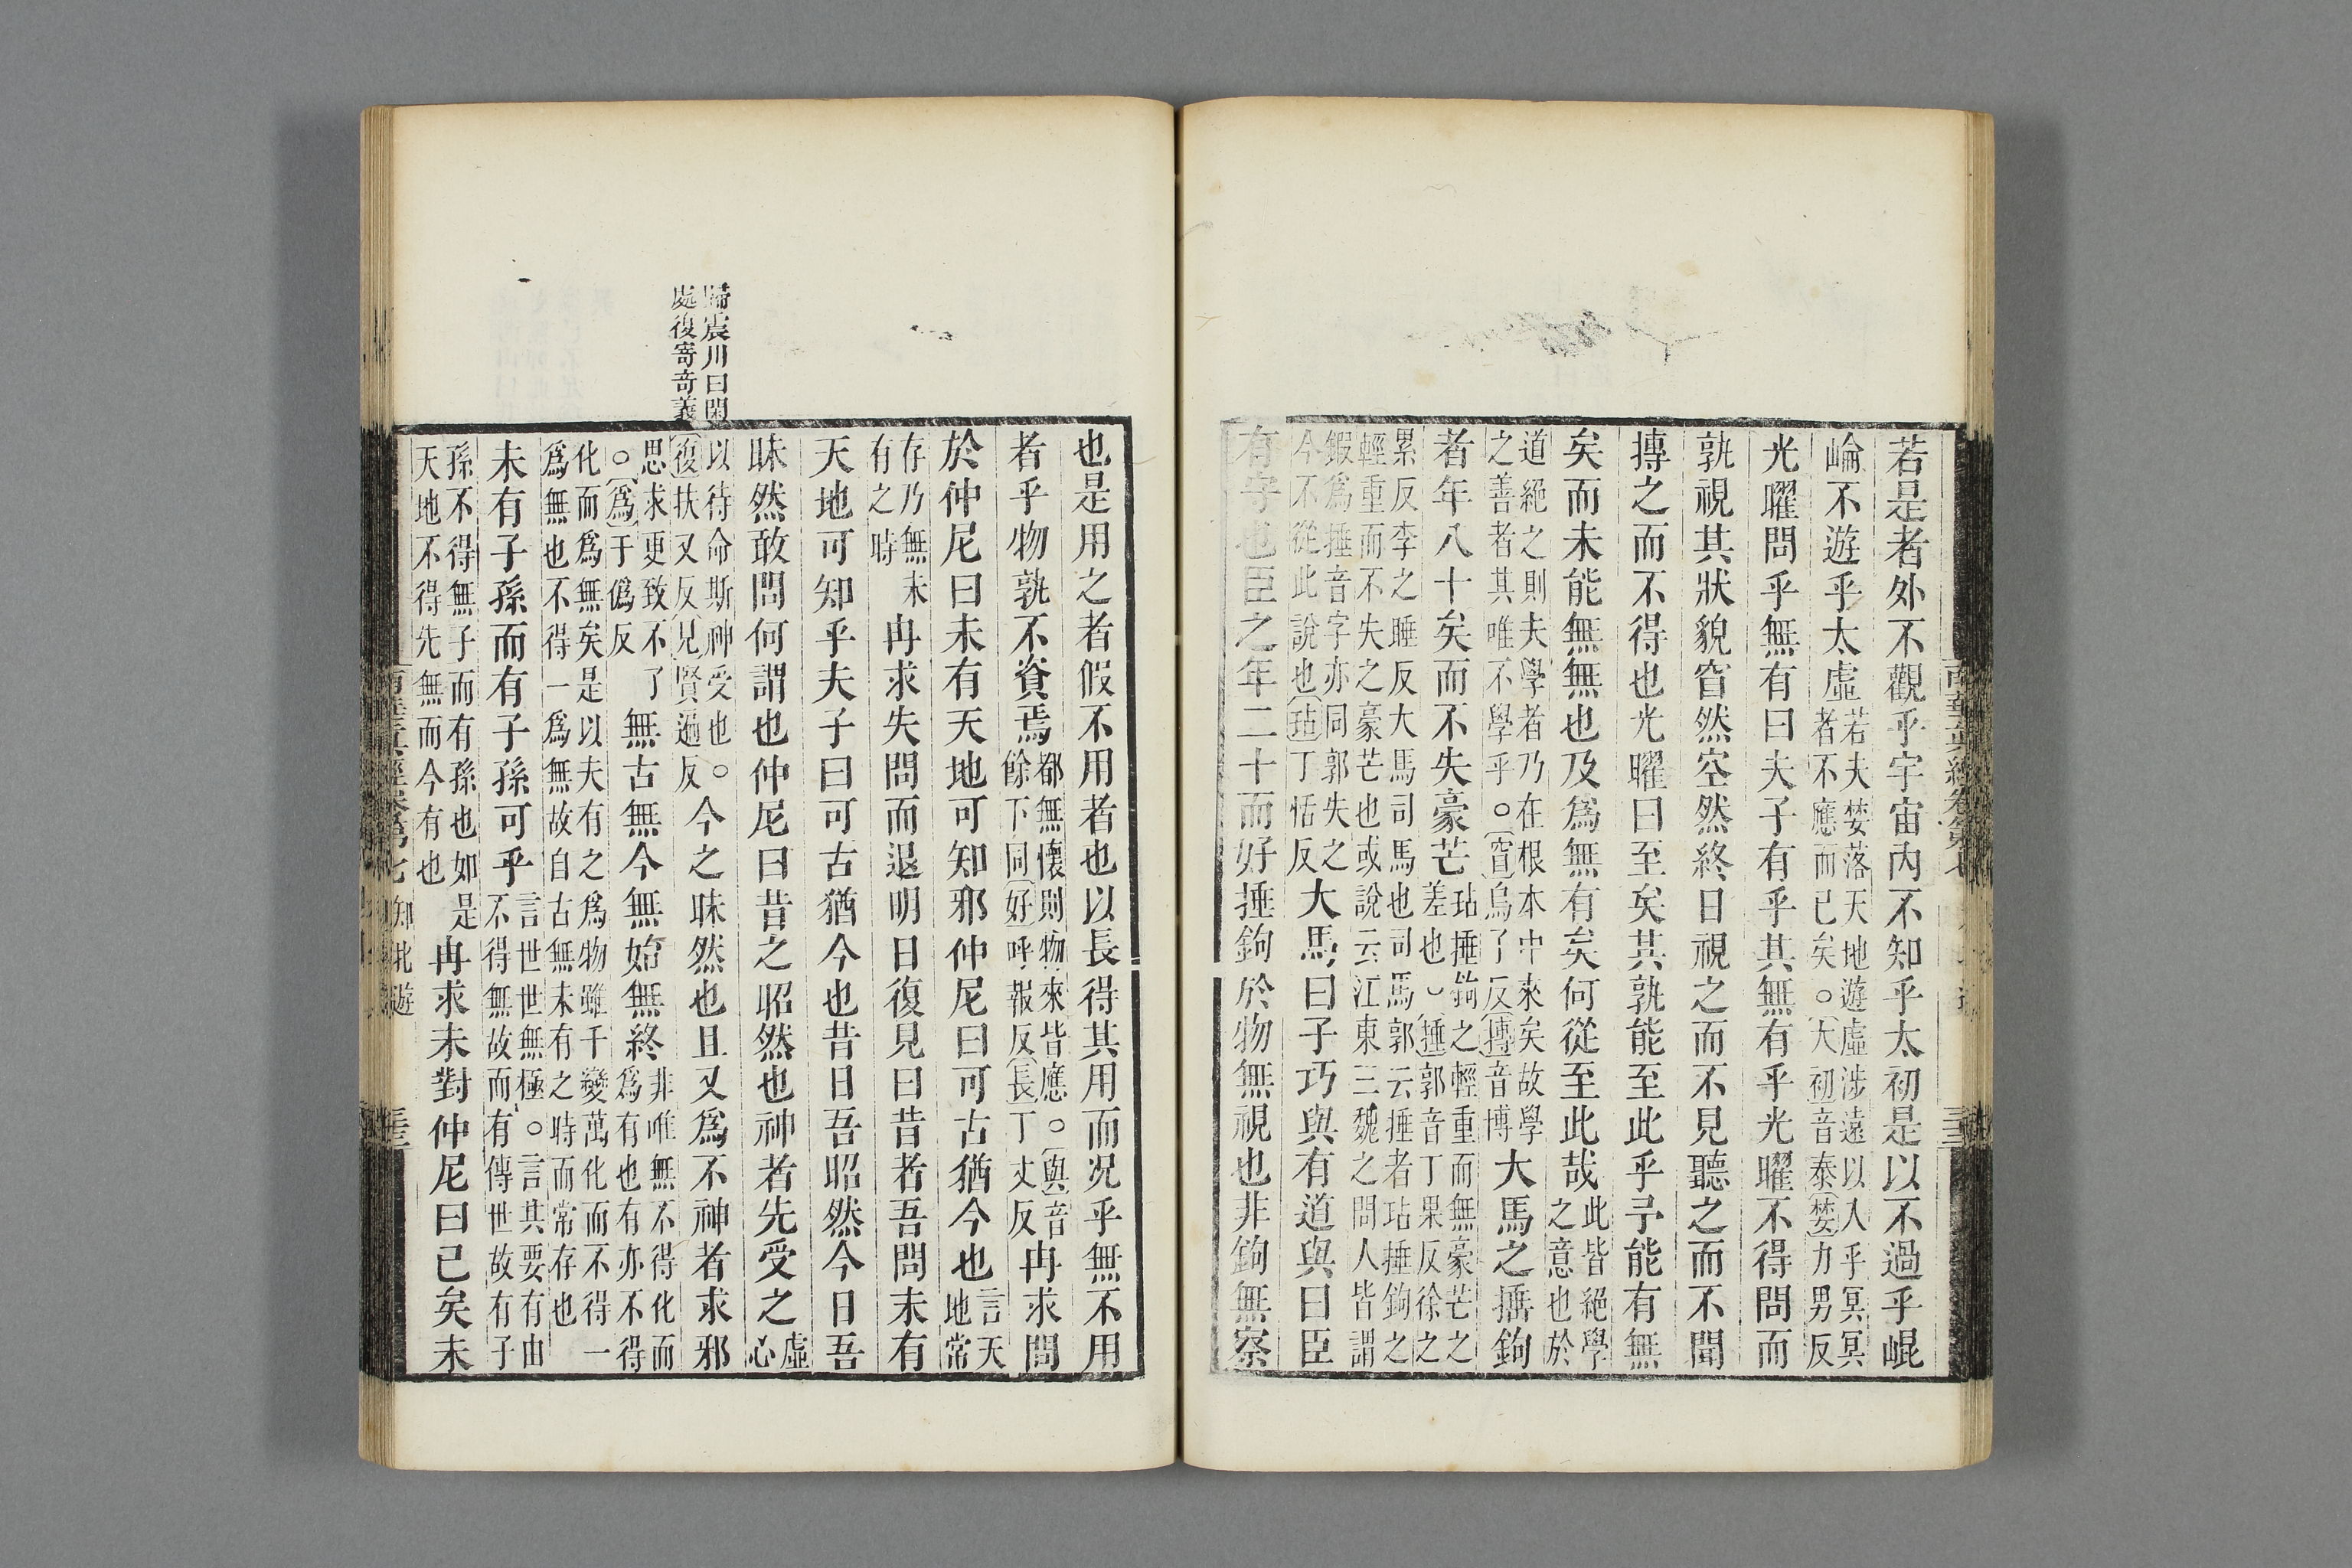 若是者外不觀乎宇宙內不知乎太初是以不過乎崐
崘不遊乎太虛若夫婪落天地遊虛涉遠以入乎冥冥者不應而已矣○大初音泰婪力男反
光曜問乎無有曰夫子有乎其無有乎光曜不得問而
孰視其狀貌窅然空然終日視之而不見聽之而不聞
搏之而不得也光曜曰至矣其孰能至此乎予能有無
矣而未能無無也及爲無有矣何從至此哉此皆絕學之意也於
道絕之則夫學者乃在根本中來矣故學之善者其唯不學乎○窅烏了反搏音博大馬之捶鉤
者年八十矣而不失豪芒玷捶鉤之輕重而無豪芒之差也○捶郭音丁果反徐之
累反李之睡反大馬司馬也司馬郭云捶者玷捶鉤之輕重而不失之豪芒也或說云江東三魏之間人皆謂
鍜爲捶音字亦同郭失之今不從此說也玷丁恬反大馬曰子巧與有道與曰臣
有守也臣之年二十而好捶鉤於物無視也非鉤無察
南華眞經卷第七
三十三
也是用之者假不用者也以長得其用而況乎無不用
者乎物孰不資焉都無懷則物來皆應○與音餘下同好呼報反長丁丈反冉求問
於仲尼曰未有天地可知邪仲尼曰可古猶今也言天地常
存乃無未有之時冉求失問而退明日復見曰昔者吾問未有
天地可知乎夫子曰可古猶今也昔日吾昭然今日吾
昧然敢問何謂也仲尼曰昔之昭然也神者先受之虛心
以待命斯神受也○復扶又反見賢遍反今之昧然也且又爲不神者求邪
思求更致不了○爲于僞反無古無今無始無終非唯無不得化而爲有也有亦不得
化而爲無矣是以夫有之爲物雖千變萬化而不得一爲無也不得一爲無故自古無未有之時而常存也
未有子孫而有子孫可乎言世世無極○言其要有由不得無故而有傳世故有子
孫不得無子而有孫也如是天地不得先無而今有也冉求未對仲尼曰已矣未
歸震川曰閑
處復寄奇義
南華眞經卷第七 知北遊
三十三